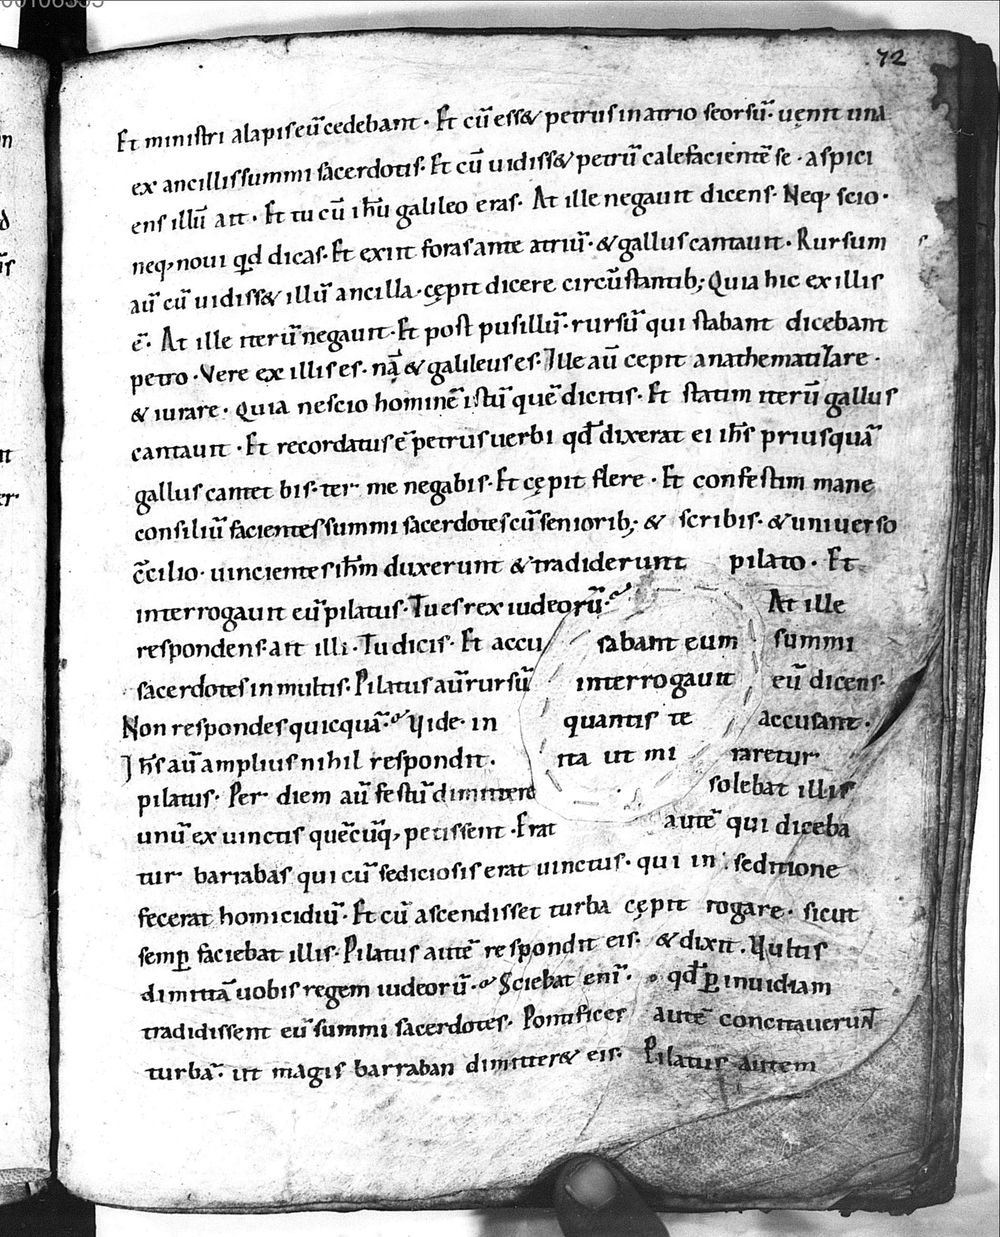 72
Et miniſtri alapiſ eū cedebant· Et cū eſſ& petruſ in atrio ſeorſū· uenit una
ex ancilliſ ſummi ſacerdotiſ· Et cū uidiſſ& petrū calefacientē ſe· aſpici
enſ illū ait· Et tu cū ihū galileo eraſ· At ille negauit dicenſ· Neq; ſcio·
neq; noui qd dicaſ· Et exiit foraſ ante atriū· & galluſ cantauit· Rurſum
aū cū uidiſſ& illū ancilla· cępit dicere circūſtantib; Quia hic ex illiſ
ē· At ille iterū negauit· Et poſt puſillū· rurſū qui ſtabant dicebant
petro· Vere ex illiſ eſ· nā & galileuſ eſ· Ille aū cepit anathematizare·
& iurare· Quia neſcio hominē iſtū quē dicitiſ· Et ſtatim iterū galluſ
cantauit· Et recordatuſ ē petruſ uerbi qd dixerat ei ihſ priuſquā
galluſ cantet biſ· ter me negabiſ· Et cępit flere· Et confeſtim mane
conſiliū facienteſ ſummi ſacerdoteſ cū ſeniorib; & ſcribiſ· & uniuerſo
c̄cilio· uincienteſ ihm duxerunt & tradiderunt pilato· Et
interrogauit eū pilatuſ· Tu eſ rex iudeorū· At ille
reſpondenſ ait illi· Tu diciſ· Et accuſabant eum ſummi
ſacerdoteſ in multiſ· Pilatuſ aū rurſū interrogauit eū dicenſ·
Non reſpondeſ quicquā· Vide· in quantiſ te accuſant·
Ihſ aū ampliuſ nihil reſpondit· ita ut mi raretur
pilatuſ· Per diem aū feſtū dimittere ſolebat illiſ
unū ex uinctiſ quēcūq; petiſſent· Erat autē qui diceba
tur barrabaſ qui cū ſedicioſiſ erat uinctuſ· qui in ſeditione
fecerat homicidiū· Et cū aſcendiſſet turba cępit rogare· ſicut
ſemp faciebat illiſ· Pilatuſ autē reſpondit eiſ· & dixit· Vultiſ
dimittā uobiſ regem iudeorū· Sciebat eni· qd p inuidiam
tradidiſſent eū ſummi ſacerdoteſ· Pontificeſ autē concitauerunt
turbā· ut magiſ barraban dimitter& eiſ· Pilatuſ autem